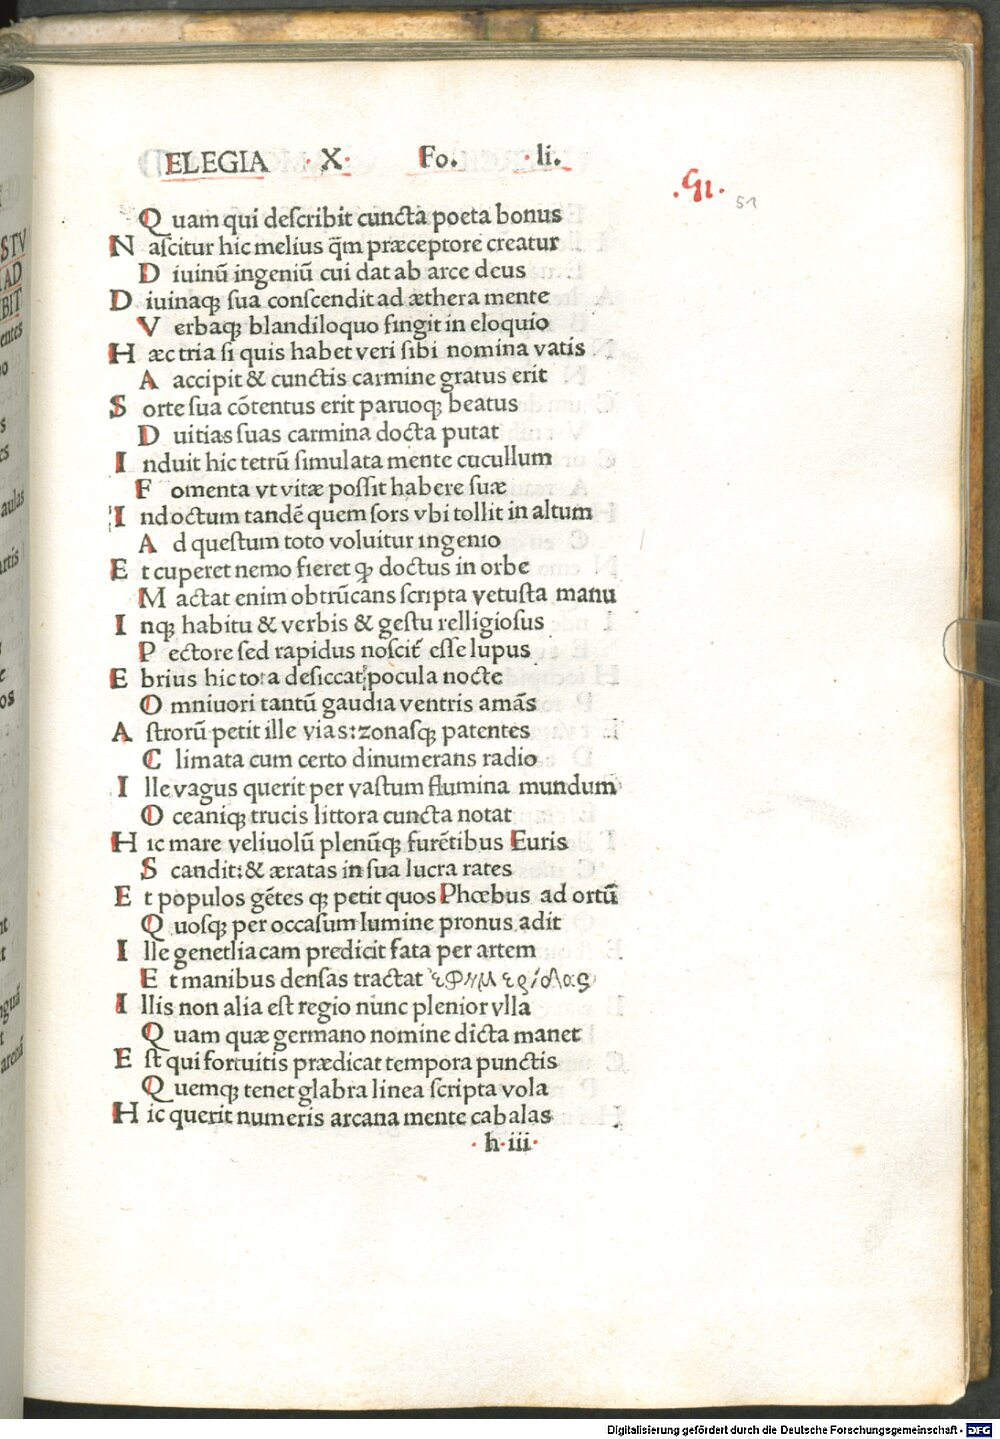 ELEGIA · X · Fo. · li.
.51.
51
Quam qui deſcribit cuncta poeta bonus
Naſcitur hic melius q̄m præceptore creatur
Diuinū ingeniū cui dat ab arce deus
Diuinaqꝫ ſua conſcendit ad æthera mente
Verbaqꝫ blandiloquo fingit in eloquio
Hæc tria ſi quis habet veri ſibi nomina vatis
Aaccipit & cunctis carmine gratus erit
Sorte ſua cōtentus erit paruoqꝫ beatus
Duitias ſuas carmina docta putat
Induit hic tetrū ſimulata mente cucullum
Fomenta vt vitæ poſſit habere ſuæ
Indoctum tandē quem ſors vbi tollit in altum
Ad queſtum toto voluitur ingenio
Et cuperet nemo fieret qꝫ doctus in orbe
Mactat enim obtrūcans ſcripta vetuſta manu
Inqꝫ habitu & verbis & geſtu relligioſus
Pectore ſed rapidus noſcit̄ eſſe lupus
Ebrius hic tota deſiccat pocula nocte
Omniuori tantū gaudia ventris amās
Aſtrorū petit ille vias: zonaſqꝫ patentes
Climata cum certo dinumerans radio
Ille vagus querit per vaſtum flumina mundum
Oceaniqꝫ trucis littora cuncta notat
Hic mare veliuolū plenūqꝫ furētibus Euris
Scandit: & æratas in ſua lucra rates
Et populos gētes qꝫ petit quos Phœbus ad ortū
Quoſqꝫ per occaſum lumine pronus adit
Ille genetliacam predicit fata per artem
Et manibus denſas tractat ἐφημερίδας
Illis non alia eſt regio nunc plenior vlla
Quam quæ germano nomine dicta manet
Eſt qui fortuitis prædicat tempora punctis
Quemqꝫ tenet glabra linea ſcripta vola
Hic querit numeris arcana mente cabalas
· h · iii ·
Digitalisierung gefördert durch die Deutsche Forschungsgemeinschaft - DFG